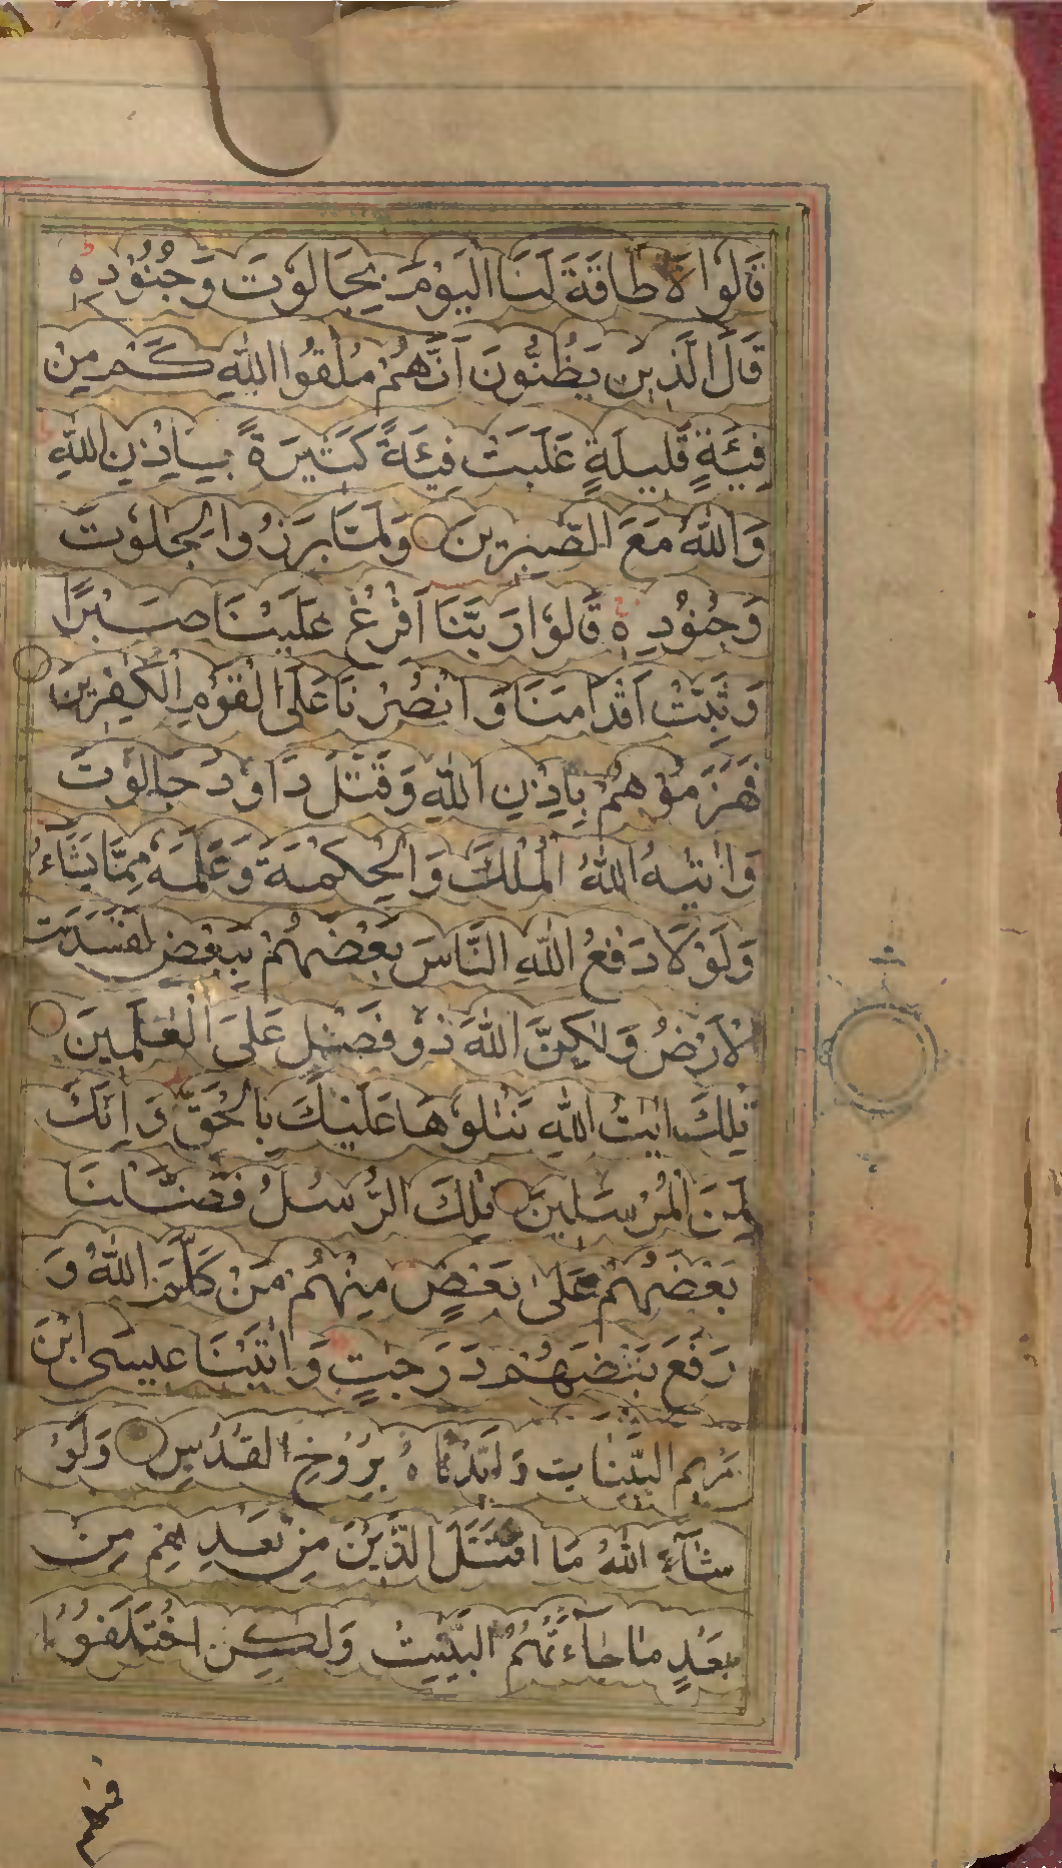 قَالُوا لَا طَاقَةَ لَنَا الْيَوْمَ بِجَالُوتَ وَجُنُوْدِهٖ
قَالَ الَّذِينَ يَظُنُّونَ اَنَّهُمْ مُلٰقُوا اللّٰهِ كَمْ مِنْ
فِئَةٍ قَلِيلَةٍ غَلَبَتْ فِئَةً كَثِيرَةً بِاِذْنِ اللّٰهِ
وَاللّٰهُ مَعَ الصّٰبِرِينَ وَلَمَّا بَرَزُوا لِجَالُوتَ
وَجُنُوْدِهٖ قَالُوْا رَبَّنَا اَفْرِغْ عَلَيْنَا صَبْرًا
وَثَبِّتْ اَقْدَامَنَا وَانْصُرْنَا عَلَى الْقَوْمِ الْكٰفِرِينَ
فَهَزَمُوْهُمْ بِاِذْنِ اللّٰهِ وَقَتَلَ دَاوٗدُ جَالُوتَ
وَاٰتٰىهُ اللّٰهُ الْمُلْكَ وَالْحِكْمَةَ وَعَلَّمَهٗ مِمَّا يَشَآءُ
وَلَوْلَا دَفْعُ اللّٰهِ النَّاسَ بَعْضَهُمْ بِبَعْضٍ لَفَسَدَتِ
الْاَرْضُ وَلٰكِنَّ اللّٰهَ ذُوْ فَضْلٍ عَلَى الْعٰلَمِينَ
تِلْكَ اٰيٰتُ اللّٰهِ نَتْلُوْهَا عَلَيْكَ بِالْحَقِّ وَاِنَّكَ
لَمِنَ الْمُرْسَلِينَ تِلْكَ الرُّسُلُ فَضَّلْنَا
بَعْضَهُمْ عَلٰى بَعْضٍ مِنْهُمْ مَنْ كَلَّمَ اللّٰهُ وَ
رَفَعَ بَعْضَهُمْ دَرَجٰتٍ وَاٰتَيْنَا عِيسَى ابْنَ
مَرْيَمَ الْبَيِّنَاتِ وَاَيَّدْنَاهُ بِرُوْحِ الْقُدُسِ وَلَوْ
شَآءَ اللّٰهُ مَا اقْتَتَلَ الَّذِينَ مِنْ بَعْدِهِمْ مِنْ
بَعْدِ مَا جَآءَتْهُمُ الْبَيِّنٰتُ وَلٰكِنِ اخْتَلَفُوْا
فمنهم